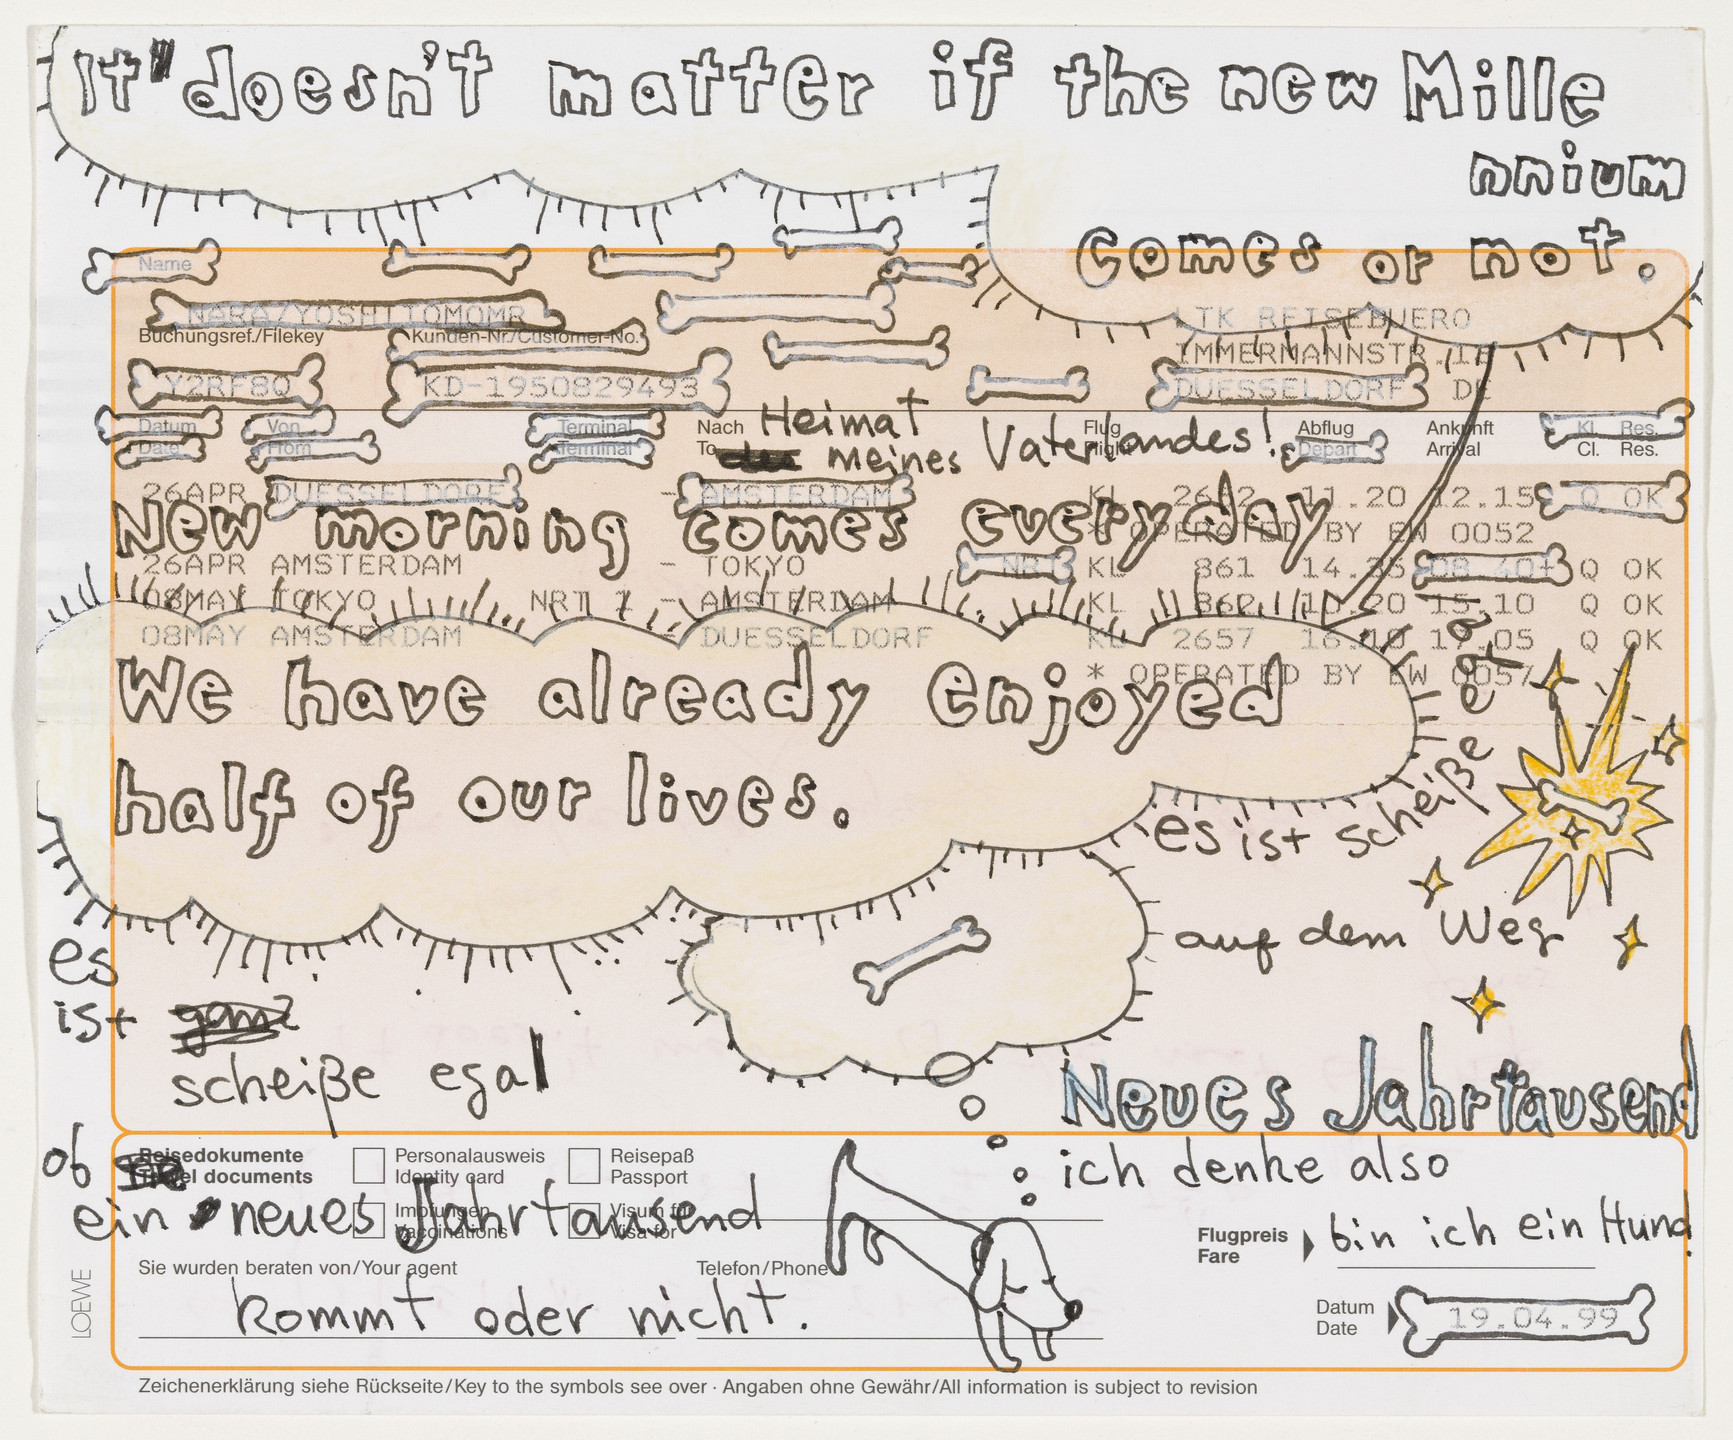 It doesn't matter if the new Mille
nnium
Comes or not.
Name
NARA/YOSHITOMOMR
Buchungsref./Filekey
Kunden-Nr./Customer-No.
Y2RF8Q
KD-1950829493
LTK REISEBUERO
IMMERMANNSTR.
DUESSELDORF DE
Datum
Date
Von
From
Terminal
Terminal
Nach
To
Heimat
meines Vaterlandes!
Flug
Flight
Abflug
Depart
Ankunft
Arrival
Kl. Res.
Cl. Res.
26APR DUESSELDORF - AMSTERDAM KL 2652 11.20 12.15 Q OK
* OPERATED BY EW 0052
New morning comes everyday
26APR AMSTERDAM - TOKYO NRT KL 861 14.35 08.40+ Q OK
08MAY TOKYO NRT 1 - AMSTERDAM KL 862 10.20 15.10 Q OK
08MAY AMSTERDAM - DUESSELDORF KL 2657 16.10 17.05 Q OK
* OPERATED BY EW 0057
We have already enjoyed
half of our lives.
es ist scheiße
auf dem Weg
es
ist
scheiße egal
ob
ein neues Jahrtausend
kommt oder nicht.
Neues Jahrtausend
ich denke also
bin ich ein Hund!
Reisedokumente
Travel documents
Personalausweis
Identity card
Reisepaß
Passport
Impfungen
Vaccinations
Visum für
Visa for
Sie wurden beraten von/Your agent
Telefon/Phone
Flugpreis
Fare
Datum
Date
19.04.99
LOEWE
Zeichenerklärung siehe Rückseite/Key to the symbols see over · Angaben ohne Gewähr/All information is subject to revision